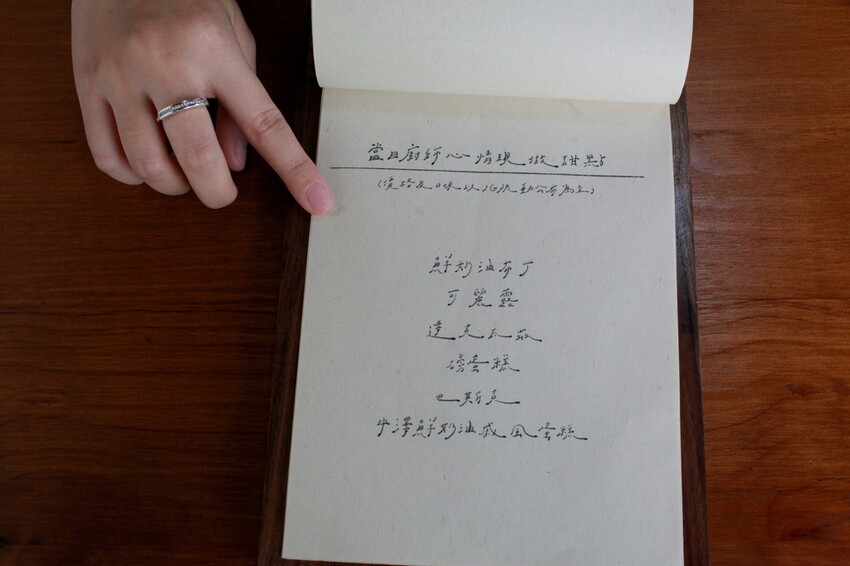 當日廚師心情現做甜點
(價格及口味以IG限動公布為主)
鮮奶油布丁
可麗露
達克瓦茲
磅蛋糕
巴斯克
中澤鮮奶油戚風蛋糕